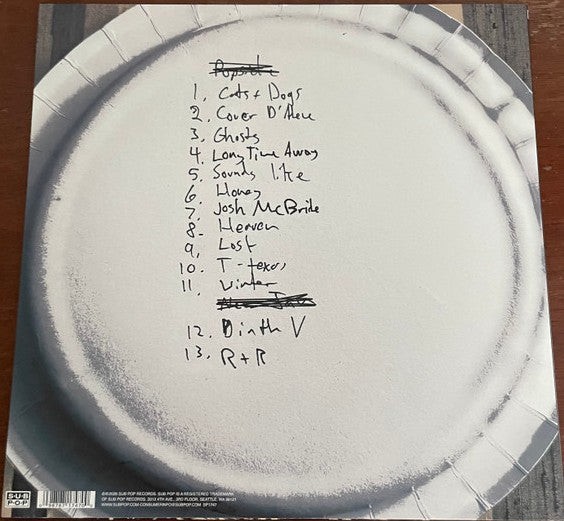 1. Cats + Dogs
2. Cover D'Alene
3. Ghosts
4. Long Time Away
5. Sounds like
6. Honey
7. Josh McBride
8. Heaven
9. Lost
10. T-texas
11. Winter
12. Dinth V
13. R + R
SUB
POP
SUB POP RECORDS. SUB POP IS A REGISTERED TRADEMARK
OF SUB POP RECORDS. 2013 4TH AVE., 3RD FLOOR, SEATTLE, WA 98121
WWW.SUBPOP.COM SP1747